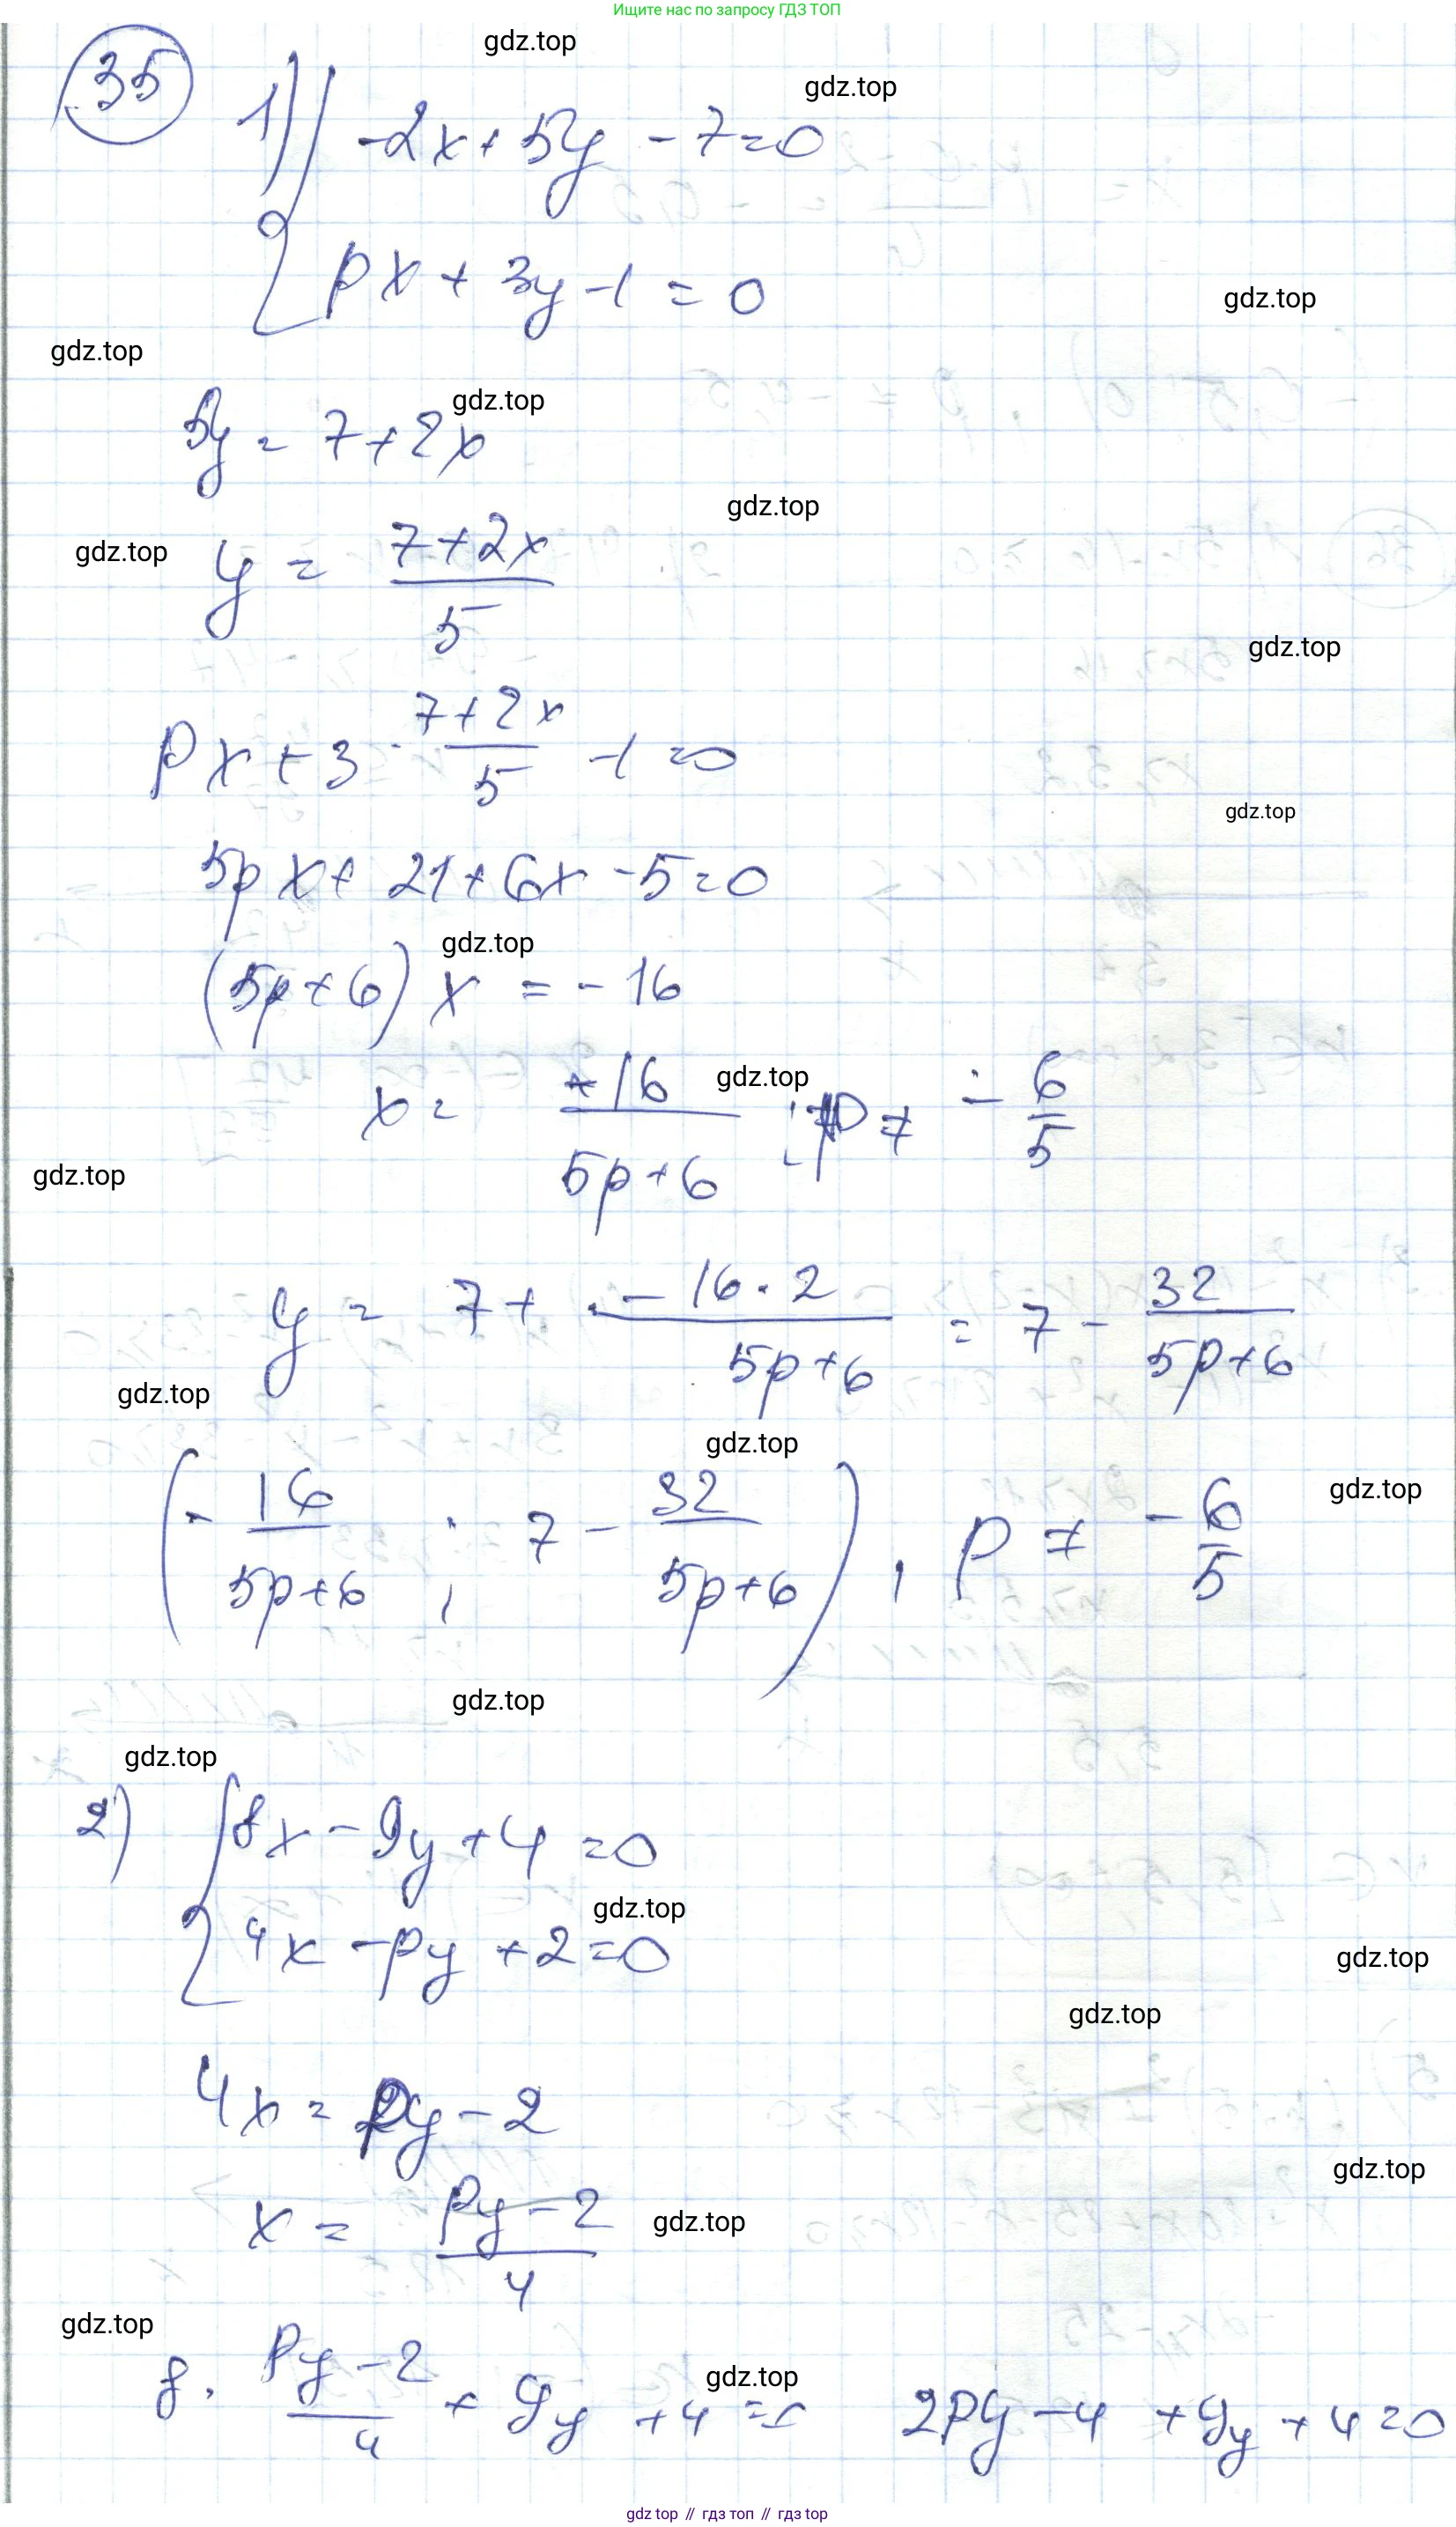 Ищите нас по запросу ГДЗ ТОП
gdz.top
35
1) { -2x + 5y - 7 = 0
gdz.top
px + 3y - 1 = 0
gdz.top
gdz.top
5y = 7 + 2x
gdz.top
gdz.top
y = (7 + 2x)/5
gdz.top
gdz.top
px + 3 · (7 + 2x)/5 - 1 = 0
gdz.top
5px + 21 + 6x - 5 = 0
gdz.top
(5p + 6) x = - 16
x = -16/(5p + 6) ; p ≠ - 6/5
gdz.top
gdz.top
y = 7 + (-16 · 2)/(5p + 6) = 7 - 32/(5p + 6)
gdz.top
gdz.top
(- 16/(5p + 6) ; 7 - 32/(5p + 6)) , p ≠ - 6/5
gdz.top
gdz.top
gdz.top
2) { 8x - 9y + 4 = 0
gdz.top
4x - py + 2 = 0
gdz.top
gdz.top
4x = py - 2
gdz.top
x = (py - 2)/4
gdz.top
gdz.top
8 · (py - 2)/4 + 9y + 4 = 0 2py - 4 + 9y + 4 = 0
gdz.top
gdz top // гдз топ // gdz top